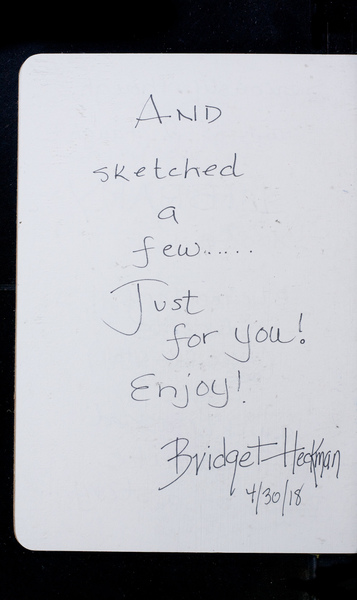 AND
sketched
a
few.....
Just
for you!
Enjoy!
Bridget Heckman
4/30/18